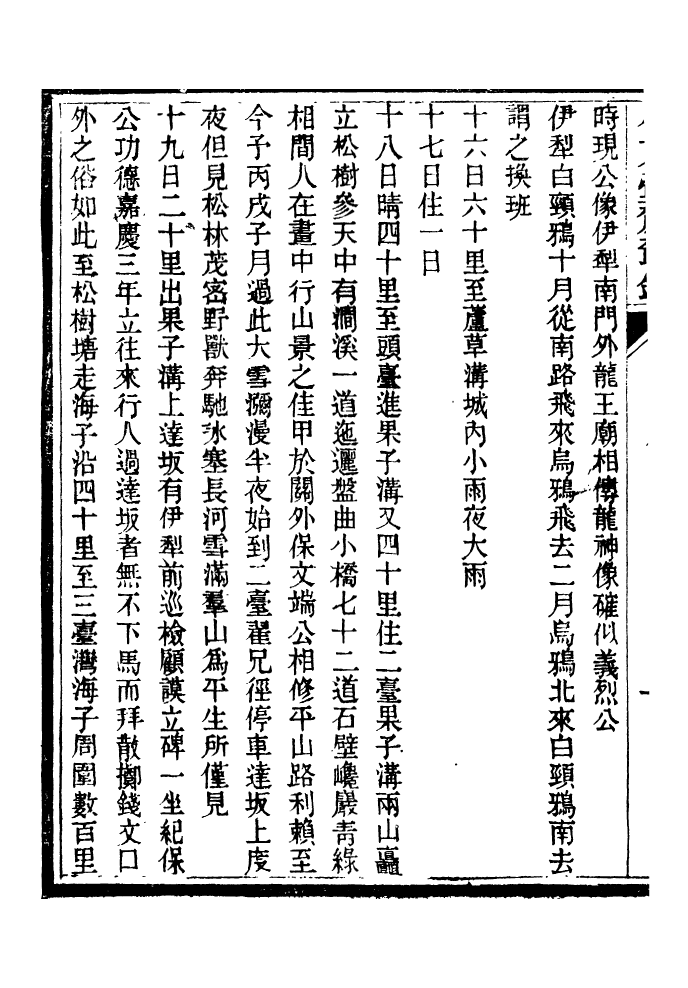 時現公像伊犁南門外龍王廟相傳龍神像確似義烈公
伊犁白頸鴉十月從南路飛來烏鴉飛去二月烏鴉北來白頸鴉南去
謂之換班
十六日六十里至蘆草溝城內小雨夜大雨
十七日住一日
十八日晴四十里至頭臺進果子溝又四十里住二臺果子溝兩山矗
立松樹參天中有澗溪一道迤邐盤曲小橋七十二道石壁巉巖青綠
相間人在畫中行山景之佳甲於關外保文端公相修平山路利賴至
今予丙戌子月過此大雪瀰漫半夜始到二臺翟兄徑停車達坂上度
夜但見松林茂密野獸奔馳冰塞長河雪滿羣山爲平生所僅見
十九日二十里出果子溝上達坂有伊犁前巡檢顧謨立碑一坐紀保
公功德嘉慶三年立往來行人過達坂者無不下馬而拜散擲錢文口
外之俗如此至松樹塘走海子沿四十里至三臺灣海子周圍數百里